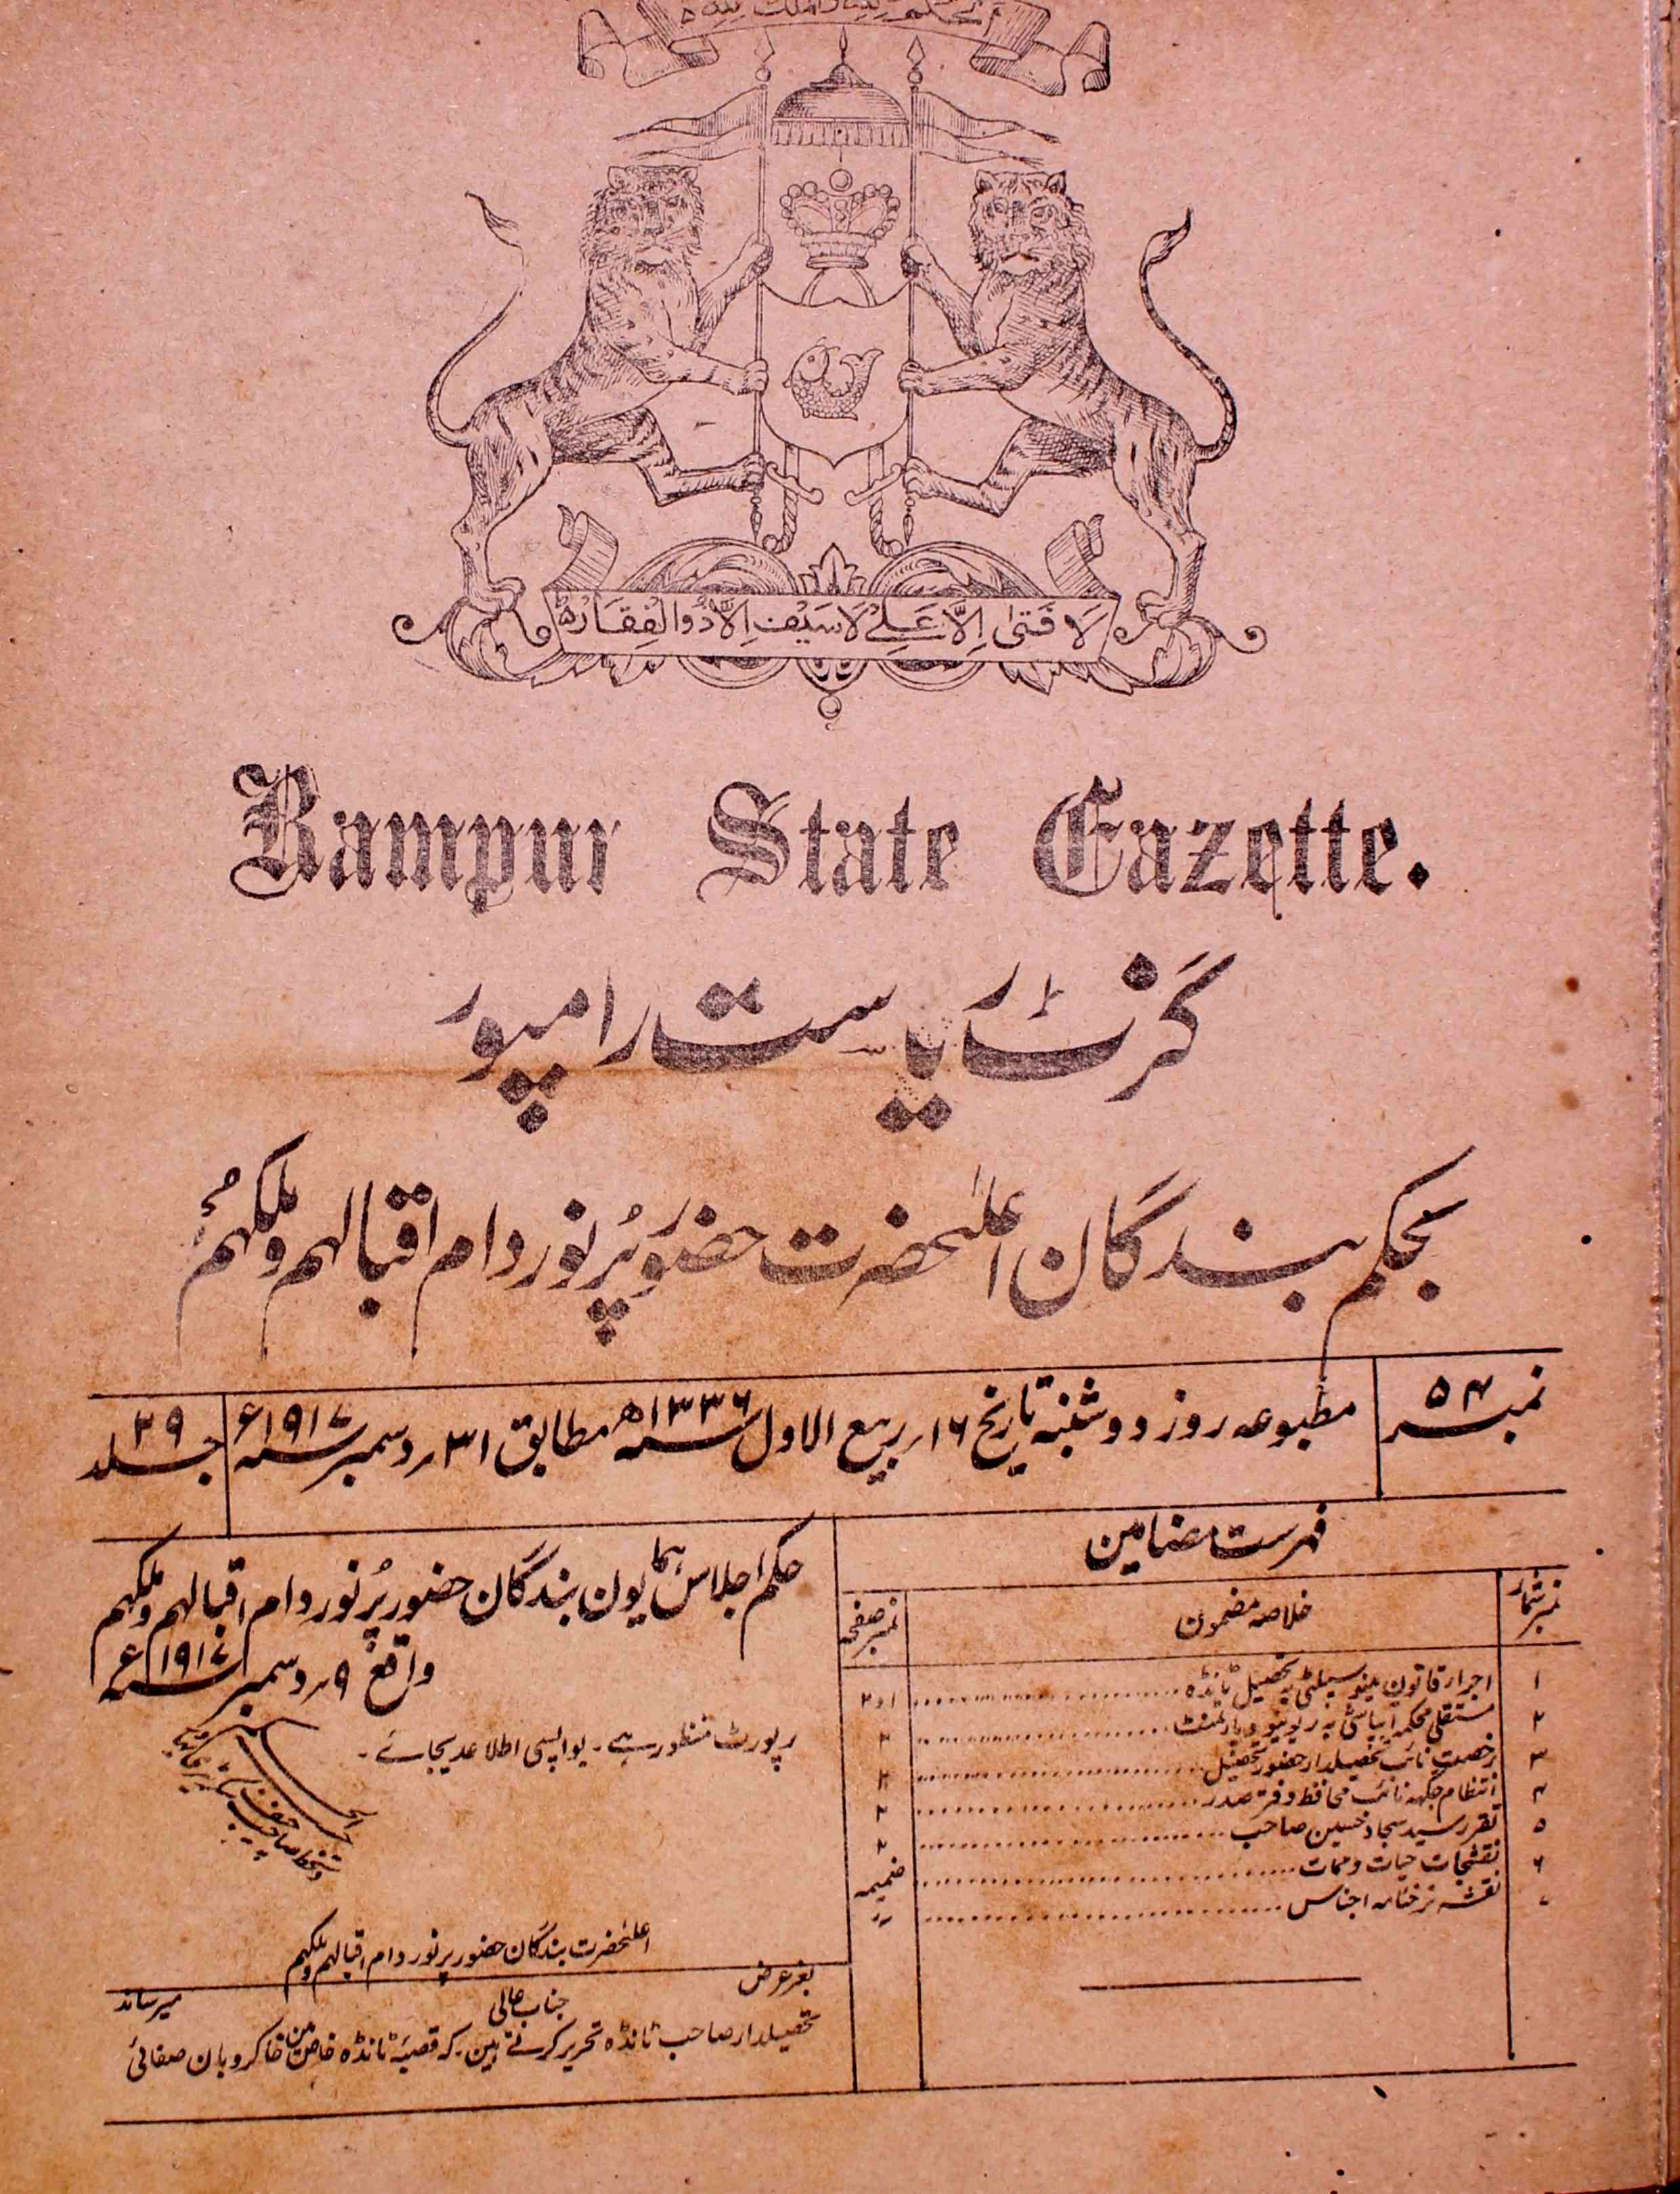 لَا فَتٰى اِلَّا عَلِے لَا سَيْف اِلَّا ذُوالْفِقَار
Rampur State Gazette.
گزٹ ریاست رامپور
بحکم بندگان اعلیٰحضرت حضور پُرنور دام اقبالہم و ملکہم
نمبر ۵۴
مطبوعہ روز دوشنبہ تاریخ ۱۶ ربیع الاول سنہ ۱۳۳۶ھ مطابق ۳۱ دسمبر سنہ ۱۹۱۷ء
جلد ۲۹
فہرست مضامین
نمبر شمار خلاصہ مضمون نمبر صفحہ
۱ اجرار قانون میونسپلٹی بہ تحصیل ٹانڈہ ۱ و ۲
۲ منتقلی محکمہ آبپاشی بہ ریوینیو ڈپارٹمنٹ ۲
۳ رخصت نائب تحصیلدار حضور تحصیل ۲
۴ انتظام جگہہ نائب محافظ دفتر صدر ۲
۵ تقرر سید سجاد حسین صاحب ۲
۶ نقشجات حیات و ممات ضمیمہ
۷ نقشہ نرخنامہ اجناس 〃
حکم اجلاس ہمایون بندگان حضور پُرنور دام اقبالہم و ملکہم
واقع ۹ دسمبر سنہ ۱۹۱۷ء
رپورٹ منظور ہے۔ بواپسی اطلاع دیجائے۔
اعلیٰحضرت بندگان حضور پرنور دام اقبالہم و ملکہم
بغرعرض میرساند
جناب عالی
تحصیلدار صاحب ٹانڈہ تحریر کرتے ہین۔ کہ قصبۂ ٹانڈہ خاص مین خاکروبان صفائی